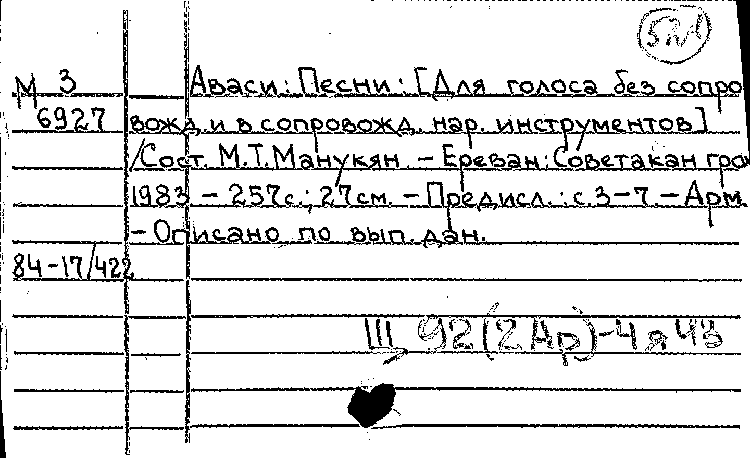 М 3 Аваси: Песни: [Для голоса без сопро
6927 вожд. и в сопровожд. нар. инструментов]
/Сост. М.Т.Манукян. – Ереван: Советакан гро
1983 – 257с.; 27см. – Предисл.: с.3–7. – Арм.
– Описано по вып.дан.
84-17/422
Щ 92(2Ар)-4я43